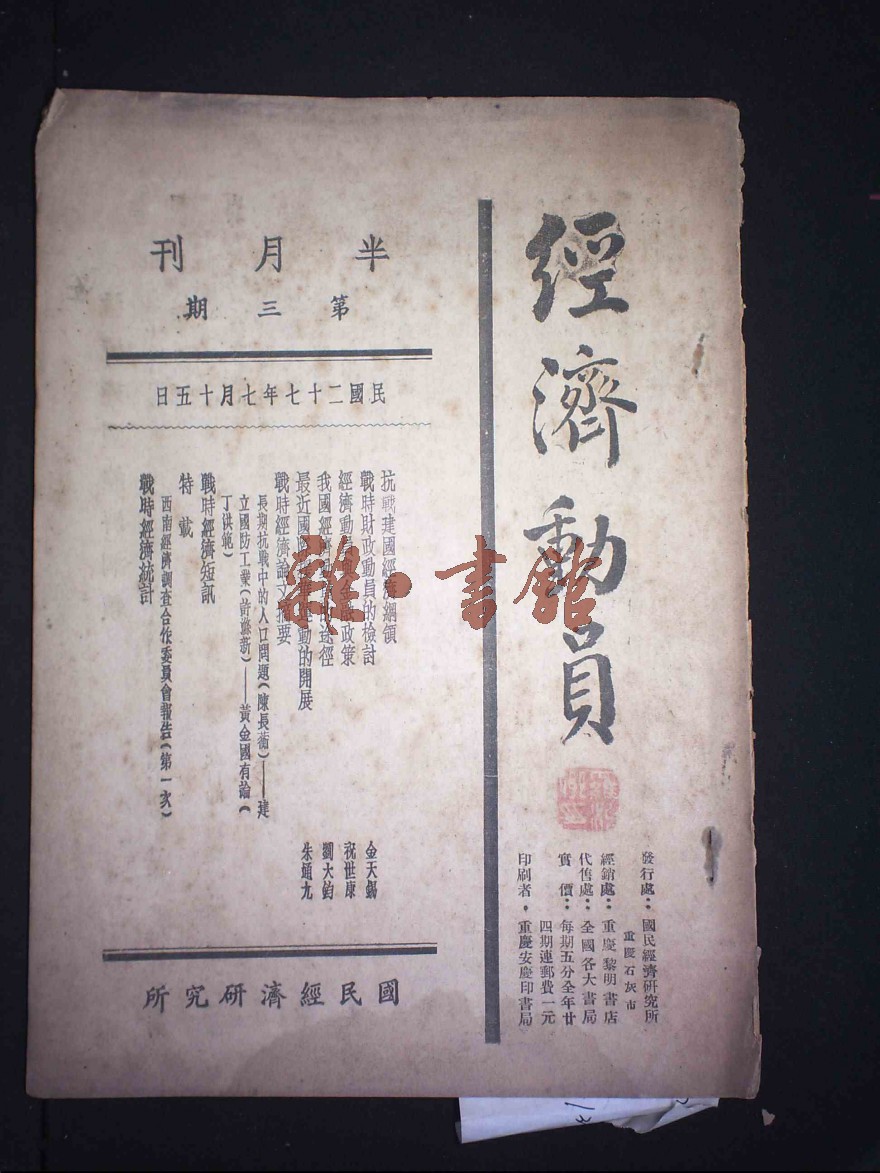 經濟動員
發行處：國民經濟研究所
重慶石灰市
經銷處：重慶黎明書店
代售處：全國各大書局
實價：每期五分全年廿
四期連郵費一元
印刷者：重慶安慶印書局
半月刊
第三期
民國二十七年七月十五日
抗戰建國經濟綱領
戰時財政動員的檢討 金天錫
經濟動員與金融政策 祝世康
我國經濟 途徑 劉大鈞
最近國 動的開展 朱通九
戰時經濟論文摘要
長期抗戰中的人口問題（陳長蘅）——建
立國防工業（許滌新）——黃金國有論（
丁洪範）
戰時經濟短訊
特載
西南經濟調查合作委員會報告（第一次）
戰時經濟統計
國民經濟研究所
雜·書館